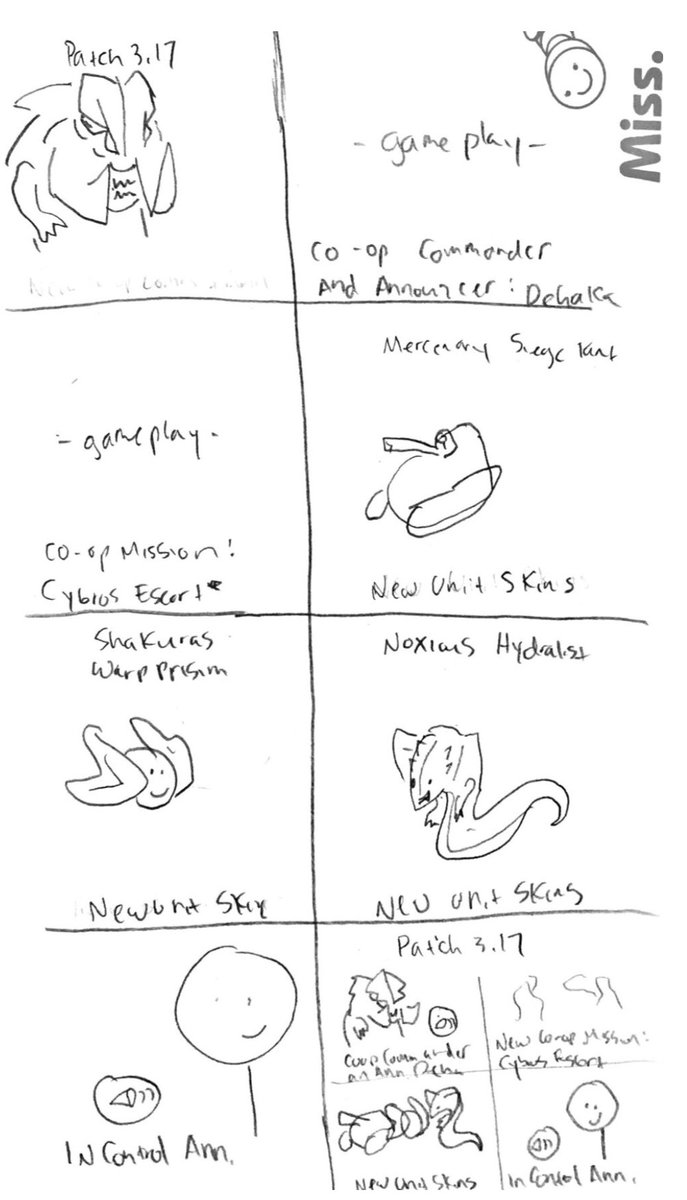 Patch 3.17
Miss.
- gameplay -
Co-op Commander
And Announcer: Dehaka
- gameplay -
Co-op Mission:
Cybros Escort*
Mercenary Siege Tank
New Unit Skins
Shakuras
Warp Prisim
New Unit Skin
Noxious Hydralist
New Unit Skins
In Control Ann.
Patch 3.17
Coop Commander
an Ann Deha
New Co-op Mission:
Cybros Escort
New Unit Skins
In Control Ann.